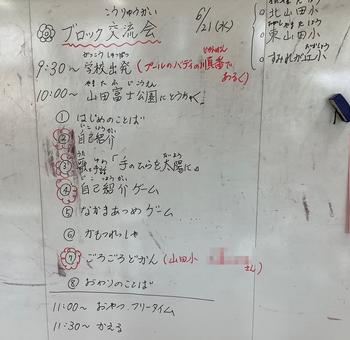 こうりゅうかい
ブロック交流会 6/21(水)
北山田小
ひがしやまたしょう
東山田小
すみれが丘小
がっこうしゅっぱつ じゅんばん
9:30〜 学校出発 (プールのバディの順番で
あるく)
やまたふじこうえん
10:00〜 山田富士公園にとうちゃく
① はじめのことば
じこしょうかい
② 自己紹介
うた しゅわ たいよう
③ 歌・手話「手のひらを太陽に」
じこしょうかい
④ 自己紹介ゲーム
⑤ なかまあつめゲーム
⑥ かもつれっしゃ
⑦ ごろごろどかん (山田小
さん)
⑧ おわりのことば
11:00〜 おやつ・フリータイム
11:30〜 かえる